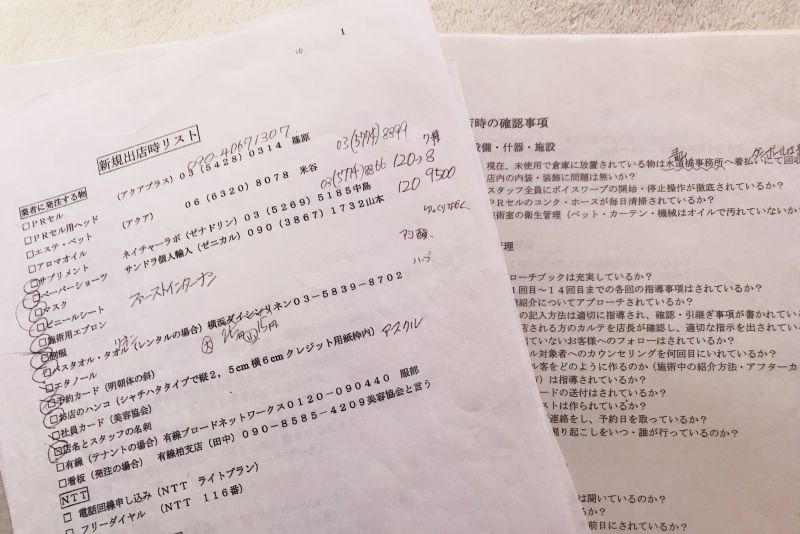 1
新規出店時リスト
090-40671307
(アクアプラス) 03(5428)0314 篠原
03(5774)8899
業者に発注する物
□PRセル
(アクア) 06(6320)8078 米谷
03(5774)8866
120→8
□PRセル用ヘッド
120 9500
□エステ・ベット
□アロマオイル
ネイチャーラボ(ゼナドリン)03(5269)5185中島
□サプリメント
サンドラ個人輸入(ゼニカル)090(3867)1732山本
□ペーパーショーツ
□マスク
ファーストインターナシ
□ビニールシート
ハーブ
□施術用エプロン
□制服
□バスタオル・タオル(レンタルの場合)横浜ダイシンリネン03-5839-8702
□エタノール
15円
□予約カード(明朝体の斜)
□お店のハンコ(シャチハタタイプで縦2,5cm横6cmクレジット用紙枠内) アスクル
□社員カード(美容協会)
□店名とスタッフの名刺
□有線(テナントの場合)有線ブロードネットワークス0120-090440 服部
□看板(発注の場合) 有線柏支店(田中)090-8585-4209美容協会と言う
NTT
□ 電話回線申し込み(NTT ライトプラン)
□ フリーダイヤル (NTT 116番)
店時の確認事項
設備・什器・施設
現在、未使用で倉庫に放置されている物は水道橋事務所へ着払いにて回収
店内の内装・装飾に問題は無いか?
スタッフ全員にボイスワープの開始・停止操作が徹底されているか?
PRセルのコンク・ホースが毎日清掃されているか?
術室の衛生管理(ベット・カーテン・機械はオイルで汚れていないか?
管理
ローチブックは充実しているか?
1回目~14回目までの各回の指導事項はされているか?
紹介についてアプローチされているか?
の記入方法は適切に指導され、確認・引継ぎ事項が書かれている
店される方のカルテを店長が確認し、適切な指示を出されている
ていないお客様へのフォローはされているか?
ル対象者へのカウンセリングを何回目にいれているか?
ル客をどのように作るのか(施術中の紹介方法・アフターカ
)は指導されているか?
ードの送付はされているか?
ストは作られているか?
連絡をし、予約日を取っているか?
掘り起こしをいつ・誰が行っているのか?
は聞いているのか?
るか?
前日にされているか?